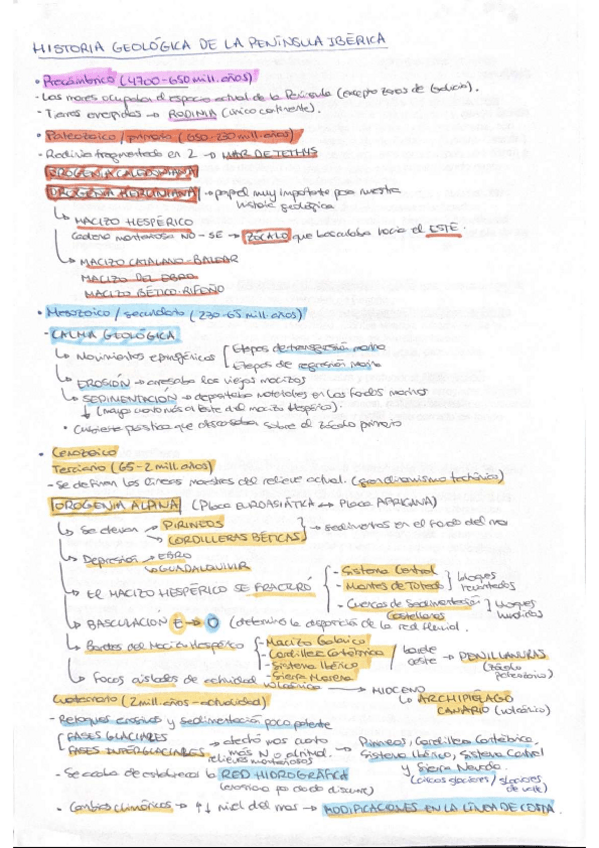 HISTORIA GEOLÓGICA DE LA PENÍNSULA IBÉRICA
• Precámbrico (4700-650 mill. años)
- Los mares ocupaban el espacio actual de la Península (excepto zonas de Galicia).
- Tierras emergidas → RODINIA (único continente).
• Paleozoico / primario (650-230 mill. años)
- Rodinia fragmentada en 2 → MAR DE TETHYS
OROGENIA CALEDONIANA
OROGENIA HERCINIANA → papel muy importante para nuestra
historia geológica
↳ MACIZO HESPÉRICO
Cadena montañosa NO-SE → ZÓCALO que basculaba hacia el ESTE.
↳ MACIZO CATALANO-BALEAR
MACIZO DEL EBRO
MACIZO BÉTICO-RIFEÑO
• Mesozoico / secundario (230-65 mill. años)
- CALMA GEOLÓGICA
↳ Movimientos epirogénicos [Etapas de transgresión marina
Etapas de regresión marina
↳ EROSIÓN → arrasaba los viejos macizos
↳ SEDIMENTACIÓN → depositaba materiales en los fondos marinos
↓ (mayor cuanto más al Este del macizo Hespérico).
• Cubierta plástica que descansaba sobre el zócalo primario
• Cenozoico
Terciario (65-2 mill. años)
- Se definen las líneas maestras del relieve actual. (gran dinamismo tectónico)
OROGENIA ALPINA (Placa EUROASIÁTICA ↔ Placa AFRICANA)
↳ Se elevan → PIRINEOS
↳ CORDILLERAS BÉTICAS } → sedimentos en el fondo del mar
↳ Depresión → EBRO
↳ GUADALQUIVIR
↳ EL MACIZO HESPÉRICO SE FRACTURÓ { - Sistema Central
- Montes de Toledo ] bloques levantados
- Cuencas de Sedimentación Castellanas ] bloques hundidos
↳ BASCULACIÓN E → O (determinó la disposición de la red fluvial.
↳ Bordes del Macizo Hespérico { - Macizo Galaico
- Cordillera Cantábrica
- Sistema Ibérico
- Sierra Morena
borde oeste → PENILLANURAS
(zócalo paleozoico)
↳ Focos aislados de actividad volcánica → MIOCENO
↳ ARCHIPIÉLAGO CANARIO (volcánico)
Cuaternario (2 mill. años - actualidad)
- Retoques erosivos y sedimentación poco potente
[FASES GLACIARES
FASES INTERGLACIARES → afectó más cuanto más N o altitud. relieves montañosos → Pirineos, Cordillera Cantábrica,
Sistema Ibérico, Sistema Central
y Sierra Nevada.
(circos glaciares / glaciares de valle)
- Se acaba de establecer la RED HIDROGRÁFICA
• Cambios climáticos → ↑↓ nivel del mar → MODIFICACIONES EN LA LÍNEA DE COSTA.